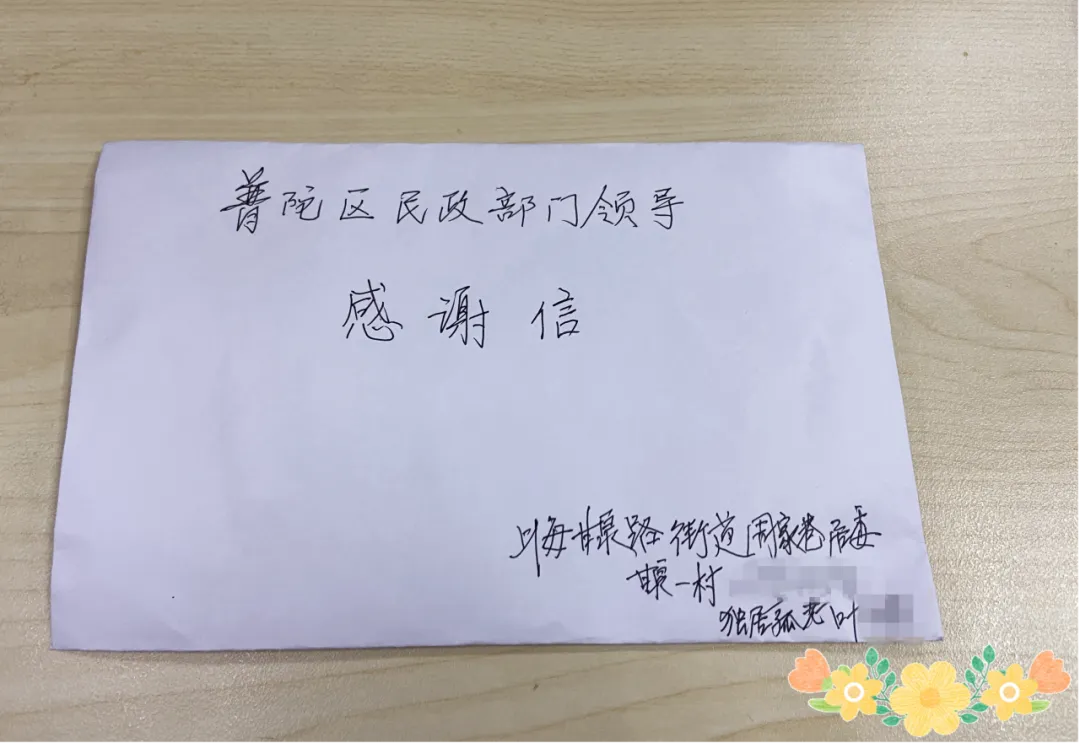 普陀区民政部门领导
感谢信
上海甘泉路街道周家巷居委
甘泉一村
独居孤老叶